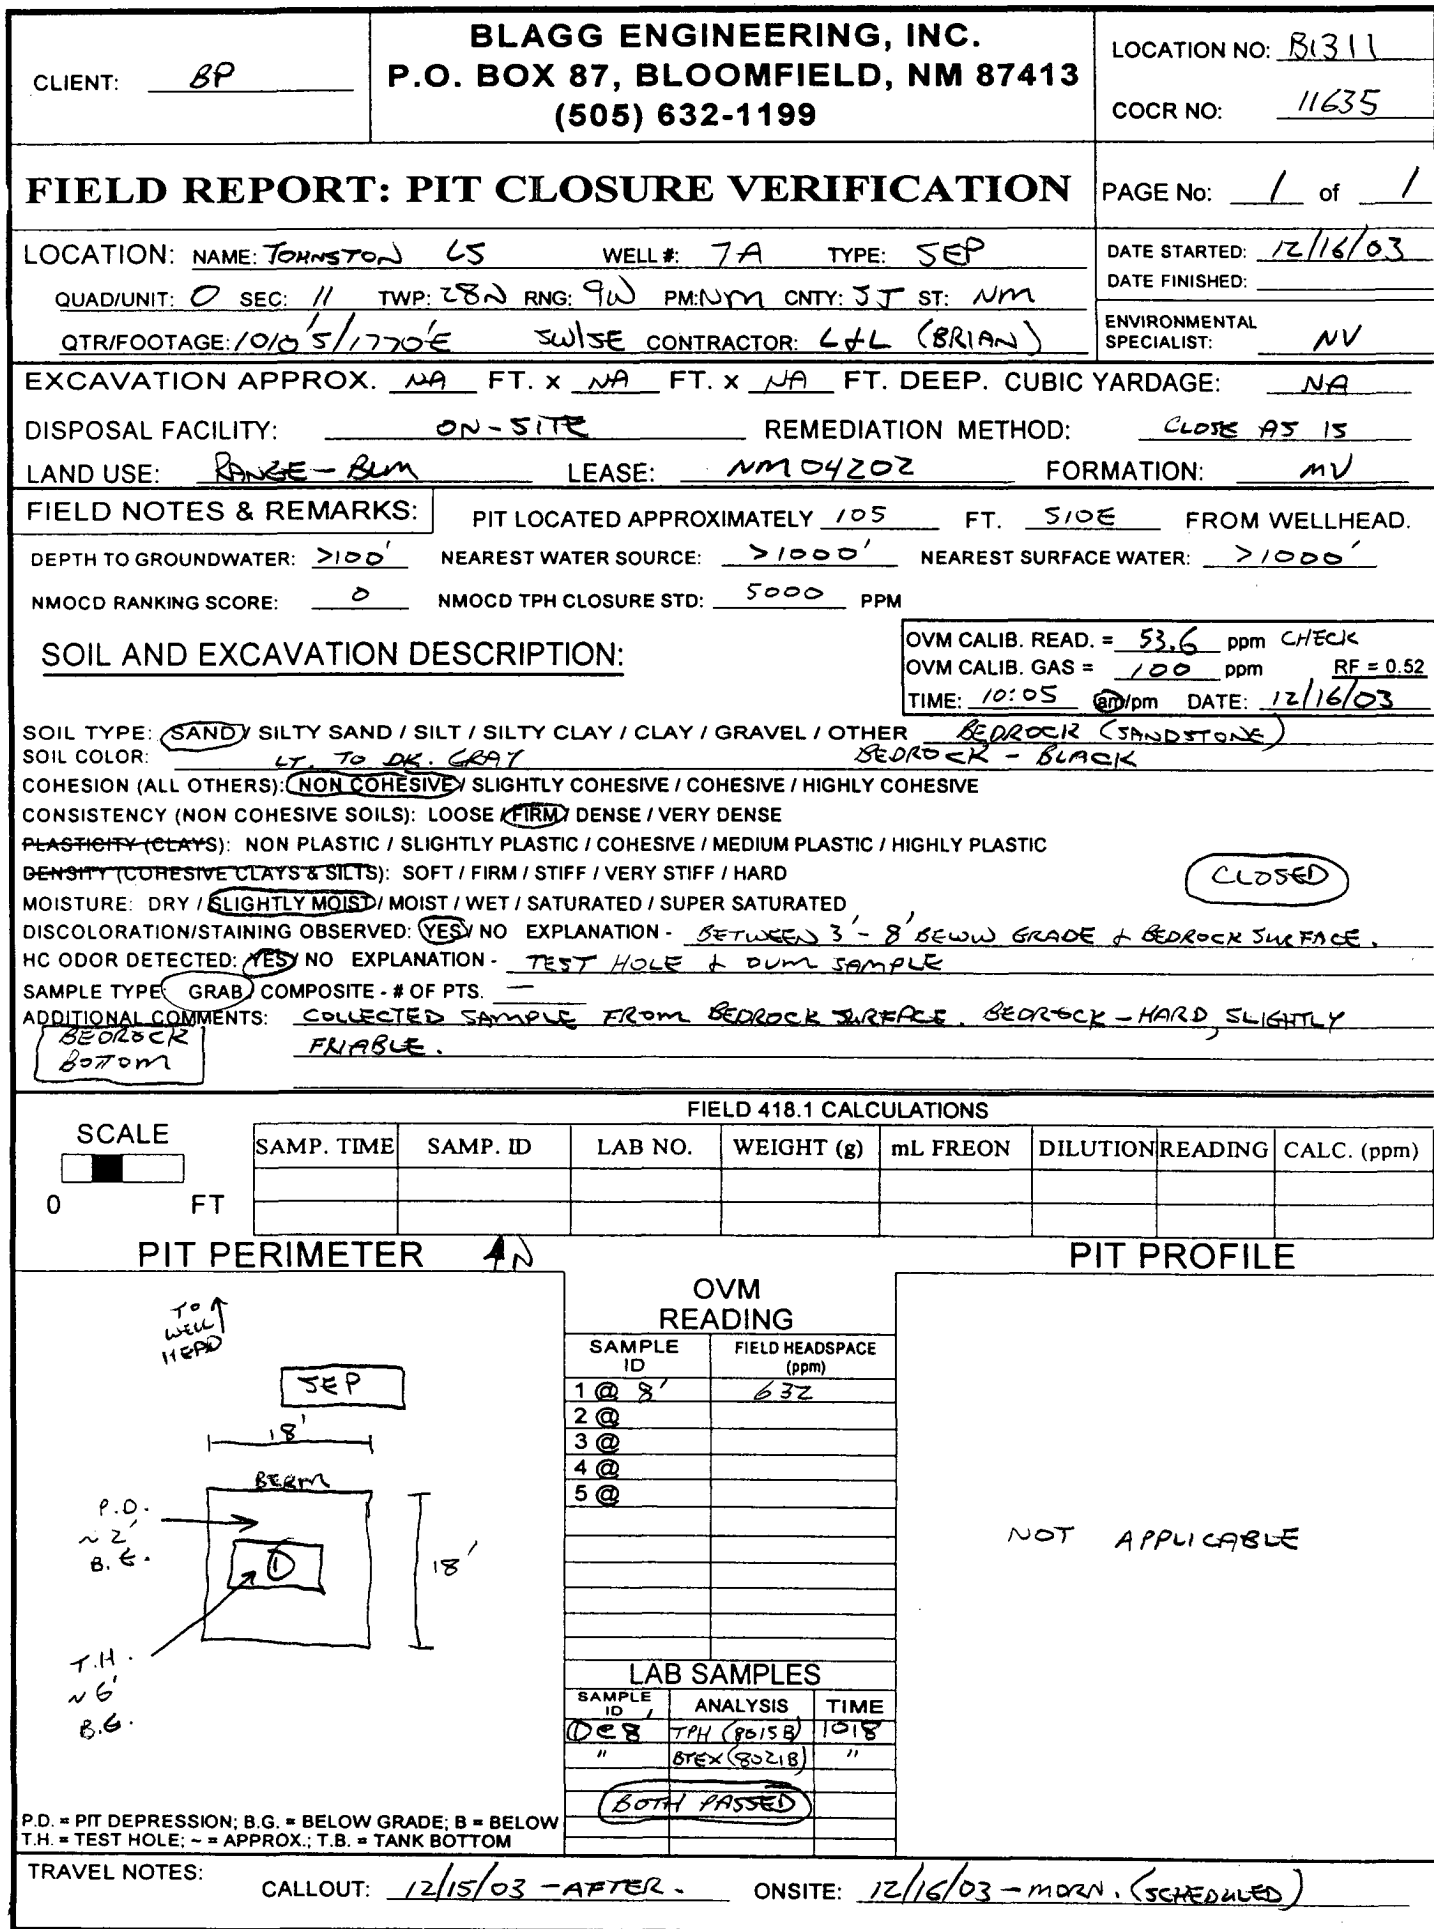 BLAGG ENGINEERING, INC.
P.O. BOX 87, BLOOMFIELD, NM 87413
(505) 632-1199
CLIENT: BP
LOCATION NO: B1311
COCR NO: 11635
FIELD REPORT: PIT CLOSURE VERIFICATION
PAGE No: 1 of 1
LOCATION: NAME: JOHNSTON LS WELL #: 7A TYPE: SEP
QUAD/UNIT: O SEC: 11 TWP: 28N RNG: 9W PM: NM CNTY: SJ ST: NM
QTR/FOOTAGE: 1010'S/1770'E SW/SE CONTRACTOR: L&L (BRIAN)
DATE STARTED: 12/16/03
DATE FINISHED:
ENVIRONMENTAL
SPECIALIST: NV
EXCAVATION APPROX. NA FT. x NA FT. x NA FT. DEEP. CUBIC YARDAGE: NA
DISPOSAL FACILITY: ON-SITE REMEDIATION METHOD: CLOSE AS IS
LAND USE: RANGE - BLM LEASE: NM04202 FORMATION: MV
FIELD NOTES & REMARKS: PIT LOCATED APPROXIMATELY 105 FT. S10E FROM WELLHEAD.
DEPTH TO GROUNDWATER: >100' NEAREST WATER SOURCE: >1000' NEAREST SURFACE WATER: >1000'
NMOCD RANKING SCORE: 0 NMOCD TPH CLOSURE STD: 5000 PPM
SOIL AND EXCAVATION DESCRIPTION:
OVM CALIB. READ. = 53.6 ppm CHECK
OVM CALIB. GAS = 100 ppm RF = 0.52
TIME: 10:05 am/pm DATE: 12/16/03
SOIL TYPE: SAND / SILTY SAND / SILT / SILTY CLAY / CLAY / GRAVEL / OTHER BEDROCK (SANDSTONE)
SOIL COLOR: LT. TO DK. GRAY BEDROCK - BLACK
COHESION (ALL OTHERS): NON COHESIVE / SLIGHTLY COHESIVE / COHESIVE / HIGHLY COHESIVE
CONSISTENCY (NON COHESIVE SOILS): LOOSE / FIRM / DENSE / VERY DENSE
PLASTICITY (CLAYS): NON PLASTIC / SLIGHTLY PLASTIC / COHESIVE / MEDIUM PLASTIC / HIGHLY PLASTIC
DENSITY (COHESIVE CLAYS & SILTS): SOFT / FIRM / STIFF / VERY STIFF / HARD
CLOSED
MOISTURE: DRY / SLIGHTLY MOIST / MOIST / WET / SATURATED / SUPER SATURATED
DISCOLORATION/STAINING OBSERVED: YES / NO EXPLANATION - BETWEEN 3'-8' BELOW GRADE & BEDROCK SURFACE.
HC ODOR DETECTED: YES / NO EXPLANATION - TEST HOLE & OVM SAMPLE
SAMPLE TYPE: GRAB / COMPOSITE - # OF PTS. —
ADDITIONAL COMMENTS: COLLECTED SAMPLE FROM BEDROCK SURFACE. BEDROCK - HARD, SLIGHTLY
FRIABLE.
BEDROCK
BOTTOM
FIELD 418.1 CALCULATIONS
SCALE
0 FT
SAMP. TIME SAMP. ID LAB NO. WEIGHT (g) mL FREON DILUTION READING CALC. (ppm)
PIT PERIMETER N
PIT PROFILE
TO
WELL
HEAD
SEP
18'
BERM
P.D.
~2'
B.G.
1
18'
T.H.
~6'
B.G.
OVM
READING
SAMPLE ID FIELD HEADSPACE (ppm)
1 @ 8' 632
2 @
3 @
4 @
5 @
LAB SAMPLES
SAMPLE ID ANALYSIS TIME
1@8' TPH (8015B) 1018
" BTEX (8021B) "
BOTH PASSED
NOT APPLICABLE
P.D. = PIT DEPRESSION; B.G. = BELOW GRADE; B = BELOW
T.H. = TEST HOLE; ~ = APPROX.; T.B. = TANK BOTTOM
TRAVEL NOTES: CALLOUT: 12/15/03 - AFTER. ONSITE: 12/16/03 - MORN. (SCHEDULED)